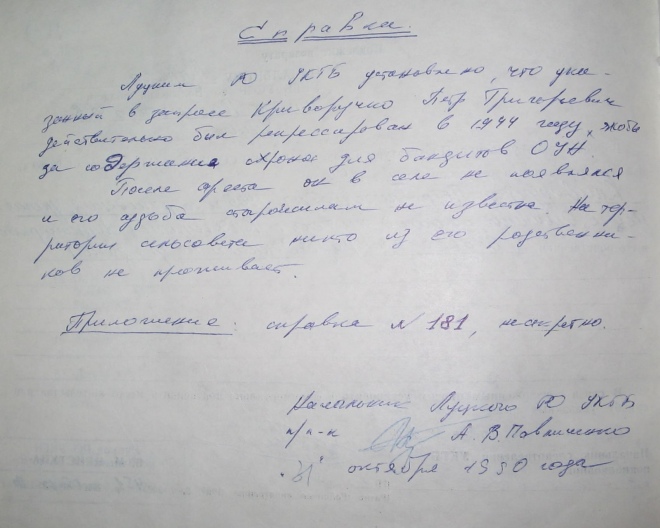 Справка.
Луцким РО УКГБ установлено, что ука-
занный в запросе Криворучко Петр Григорьевич
действительно был репрессирован в 1944 году, якобы
за содержание схрона для бандитов ОУН.
После ареста он в селе не появлялся
и его судьба старожилам не известна. На тер-
ритории сельсовета никто из его родственни-
ков не проживает.
Приложение: справка № 181, несекретно.
Начальник Луцкого РО УКГБ
п/п-к А.В. Павличенко
"31" октября 1990 года